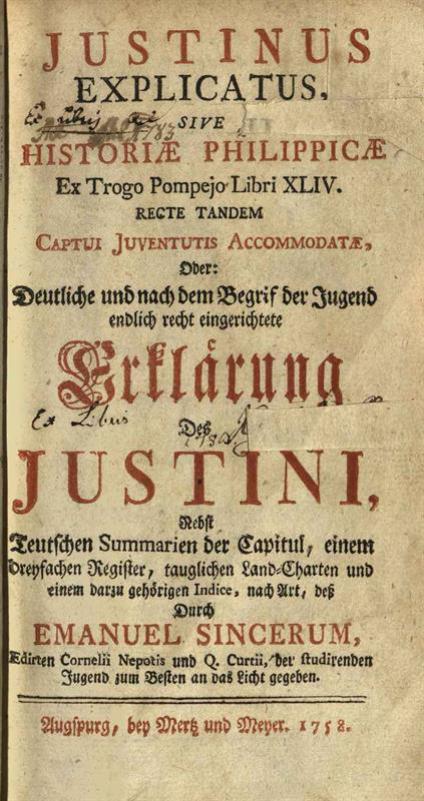 JUSTINUS
EXPLICATUS,
Ex libris
SIVE
HISTORIÆ PHILIPPICÆ
Ex Trogo Pompejo Libri XLIV.
RECTE TANDEM
CAPTUI JUVENTUTIS ACCOMMODATÆ,
Oder:
Deutliche und nach dem Begrif der Jugend
endlich recht eingerichtete
Erklärung
Ex Libris
Des
JUSTINI,
Nebst
Teutschen Summarien der Capitul, einem
dreyfachen Register, tauglichen Land-Charten und
einem darzu gehörigen Indice, nach Art, deß
Durch
EMANUEL SINCERUM,
Edirten Cornelii Nepotis und Q. Curtii, der studirenden
Jugend zum Besten an das Licht gegeben.
Augspurg, bey Mertz und Meyer. 1758.